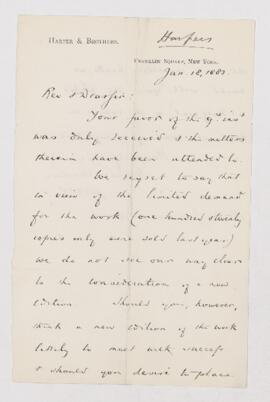 Harpers
HARPER & BROTHERS.
FRANKLIN SQUARE, NEW YORK.
Jan. 18, 1883
Rev. & Dear Sir:
Your favor of the 9th inst
was duly received & the matters
therein have been attended to.
We regret to say that
in view of the limited demand
for the work (one hundred & twenty
copies only were sold last year)
we do not see our way clear
to the consideration of a new
edition. Should you, however,
think a new edition of the work
likely to meet with success
& should you desire to place